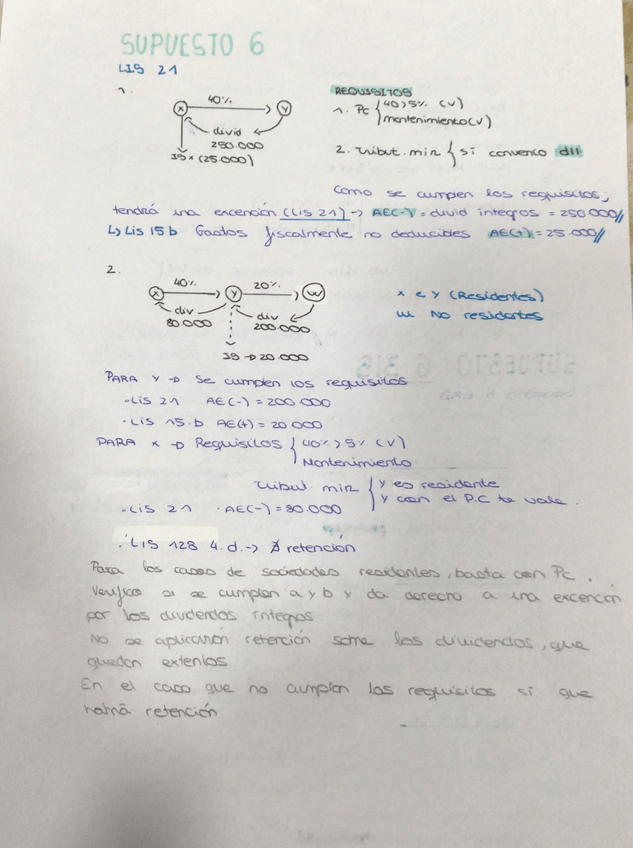 SUPUESTO 6
LIS 21
1.
40%
X
Y
divid
250.000
IS* (25.000)
REQUISITOS
1. Pc { 40>5% (V)
mantenimiento (V)
2. Tribut. min { Si convenio dII
Como se cumplen los requisitos,
tendrá una excención (Lis 21) -> AE(-) = divid integros = 250.000//
L> Lis 15 b Gastos fiscalmente no deducibles AE(+) = 25.000//
2.
40%
20%
X
Y
W
div
80.000
div
200.000
IS -> 20.000
X e Y (Residentes)
W No residentes
PARA Y -> Se cumplen los requisitos
·Lis 21 AE(-) = 200.000
·Lis 15.b AE(+) = 20.000
PARA X -> Requisitos { 40%>5% (V)
Mantenimiento
Tribut. min { Y es residente
y con el P.C te vale.
·Lis 21 ·AE(-) = 80.000
·LIS 128 4.d. -> ∄ retención
Para los casos de sociedades residentes, basta con Pc.
Verifico si se cumplen a y b y da derecho a una excención
por los dividendos integros
No se aplicarán retención sobre los dividendos, que
quedan extentos
En el caso que no cumplan los requisitos si que
habrá retención